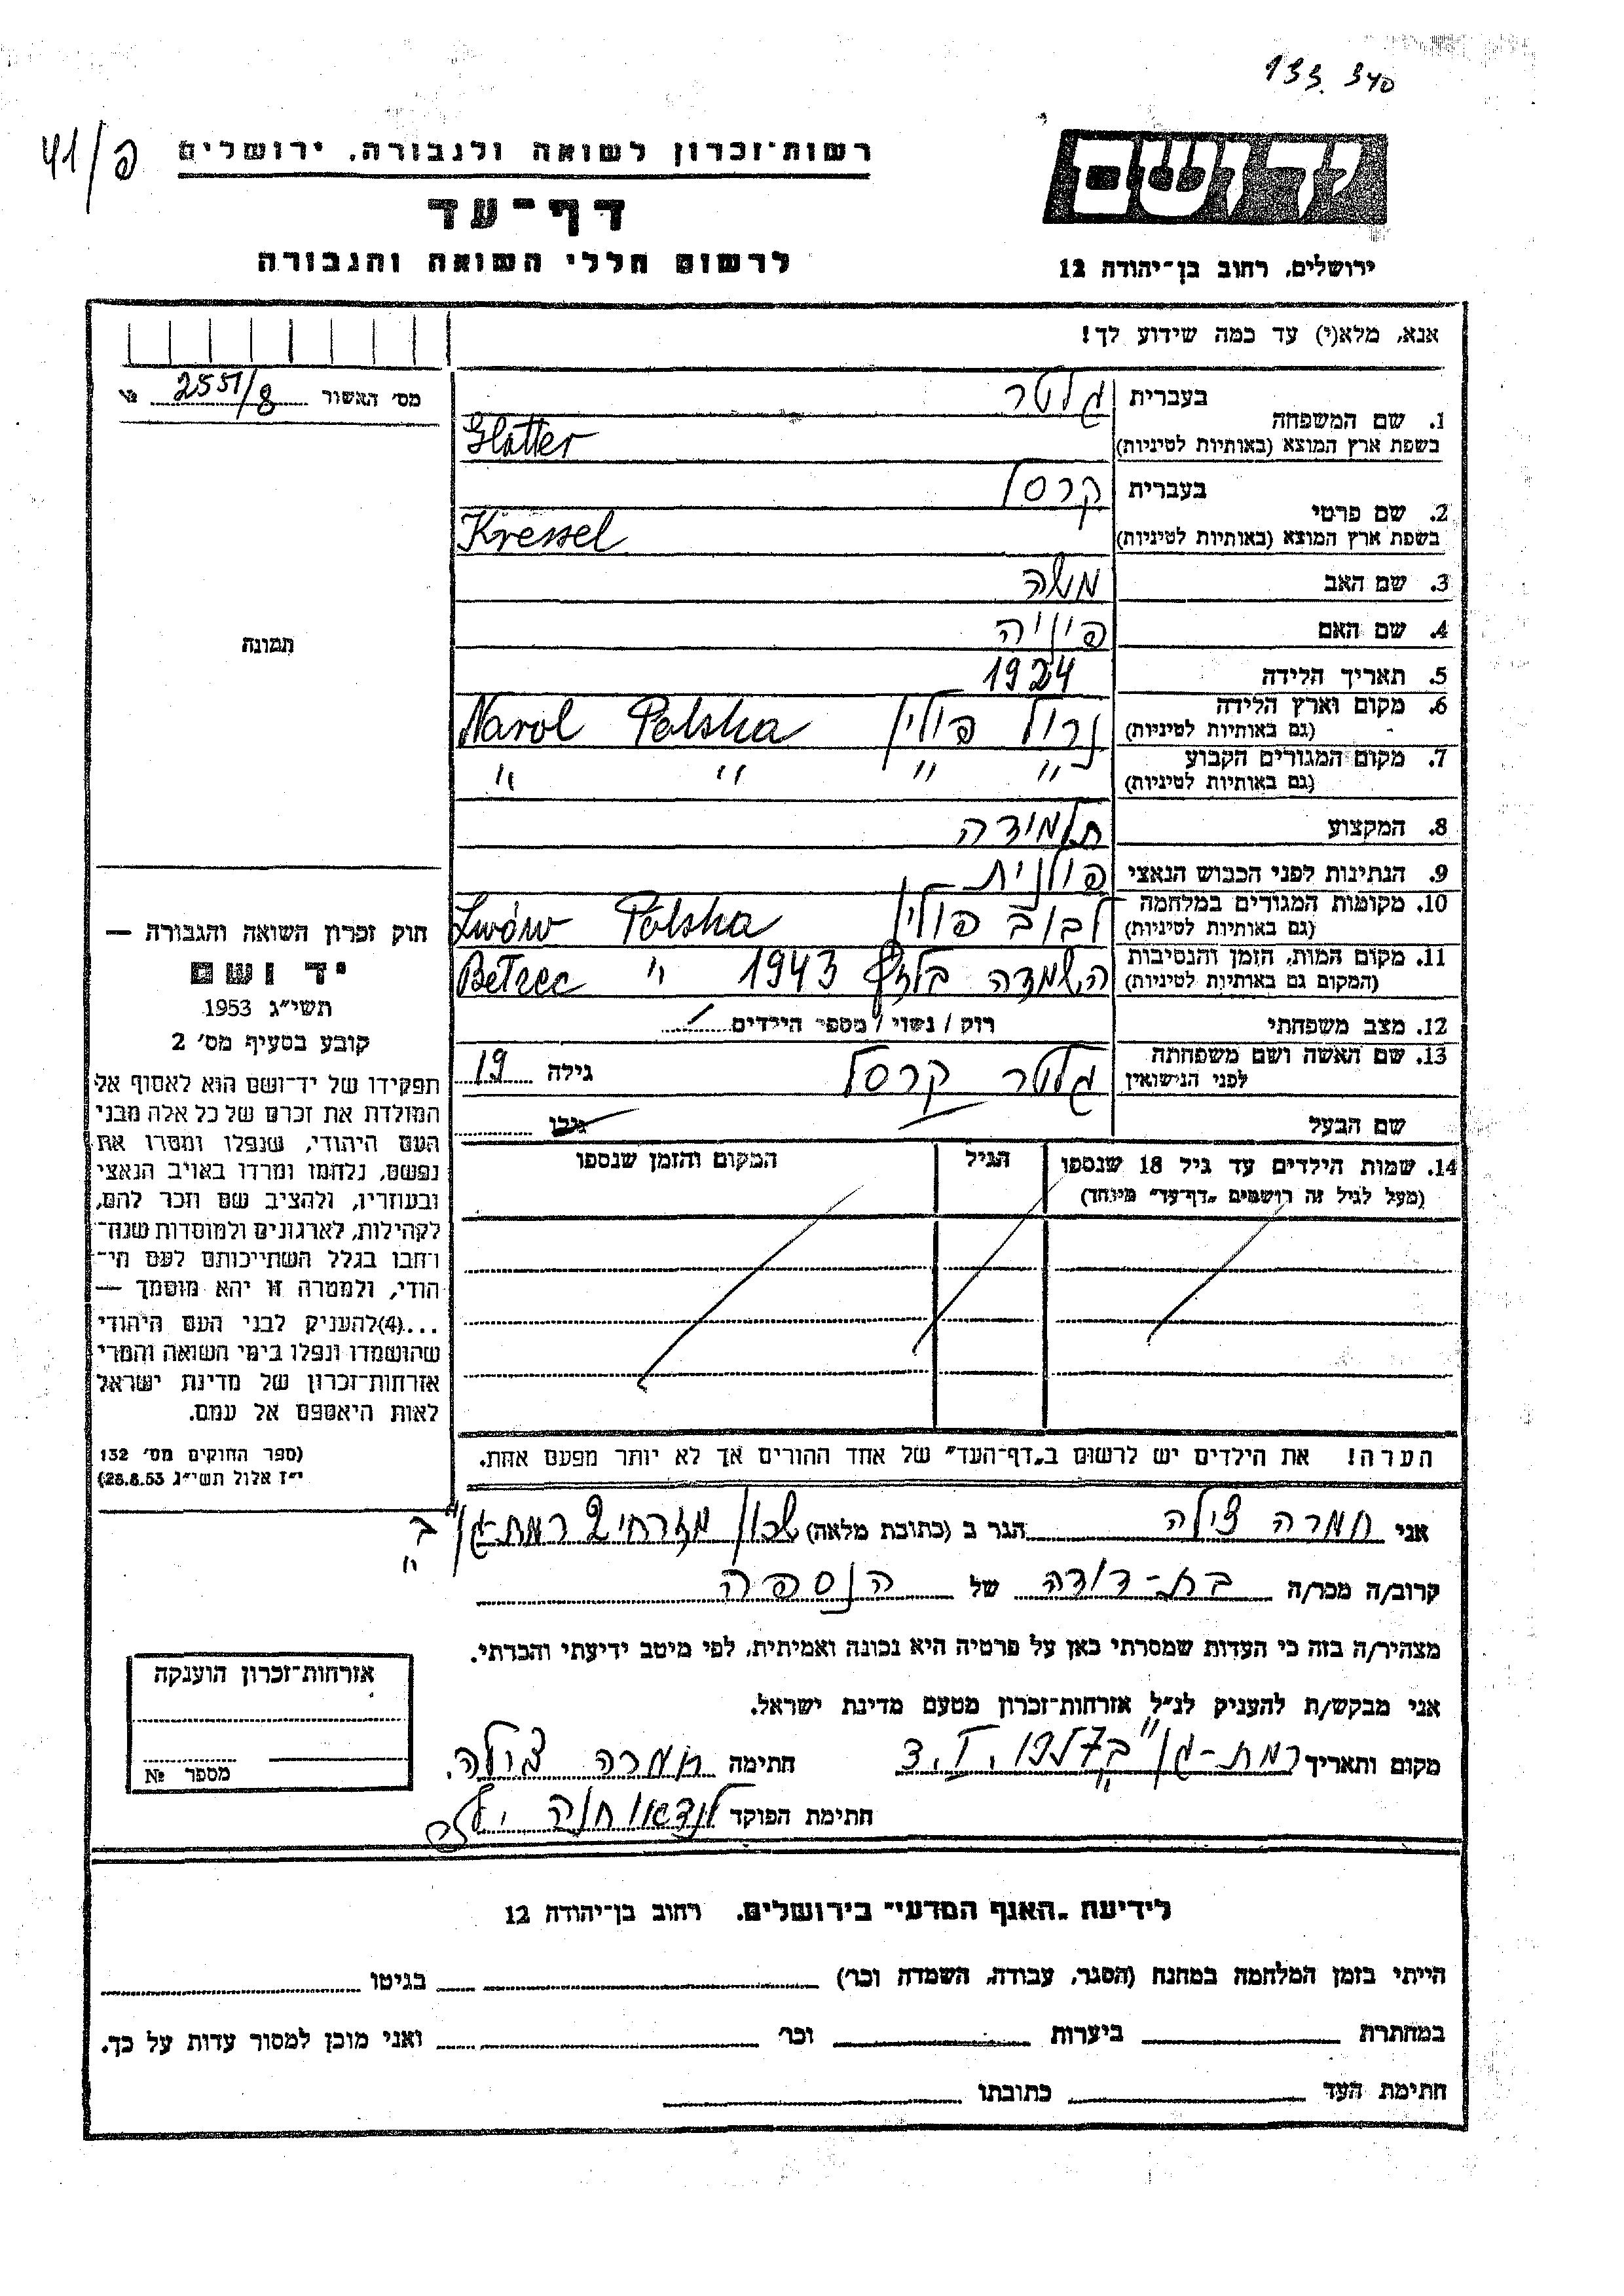 133.340
41/פ
רשות־זכרון לשואה ולגבורה, ירושלים
דף־עד
לרשום חללי השואה והגבורה
יד ושם
ירושלים, רחוב בן־יהודה 12
אנא, מלא(י) עד כמה שידוע לך!
מס׳ האשור 2551/8 №
תמונה
1. שם המשפחה בעברית גלטר
בשפת ארץ המוצא (באותיות לטיניות) Glatter
2. שם פרטי בעברית קרסל
בשפת ארץ המוצא (באותיות לטיניות) Kressel
3. שם האב משה
4. שם האם
5. תאריך הלידה 1924
6. מקום וארץ הלידה נרול פולין Narol Polska
(גם באותיות לטיניות)
7. מקום המגורים הקבוע " " " "
(גם באותיות לטיניות)
8. המקצוע תלמידה
9. הנתינות לפני הכבוש הנאצי פולנית
10. מקומות המגורים במלחמה לבוב פולין Lwów Polska
(גם באותיות לטיניות)
11. מקום המות, הזמן והנסיבות השמדה בלזץ 1943 " Bełzec
(המקום גם באותיות לטיניות)
12. מצב משפחתי רוק / נשוי / מספר הילדים
13. שם האשה ושם משפחתה גלטר קרסל גילה 19
לפני הנישואין
שם הבעל גילו
14. שמות הילדים עד גיל 18 שנספו הגיל המקום והזמן שנספו
(מעל לגיל זה רושמים „דף־עד״ מיוחד)
הערה! את הילדים יש לרשום ב„דף־העד״ של אחד ההורים אך לא יותר מפעם אחת.
חוק זכרון השואה והגבורה —
יד ושם
תשי״ג 1953
קובע בסעיף מס׳ 2
תפקידו של יד־ושם הוא לאסוף אל
המולדת את זכרם של כל אלה מבני
העם היהודי, שנפלו ומסרו את
נפשם, נלחמו ומרדו באויב הנאצי
ובעוזריו, ולהציב שם וזכר להם,
לקהילות, לארגונים ולמוסדות שנח־
רבו בגלל השתייכותם לעם הי־
הודי, ולמטרה זו יהא מוסמך —
...(4)להעניק לבני העם היהודי
שהושמדו ונפלו בימי השואה והמרי
אזרחות־זכרון של מדינת ישראל
לאות היאספם אל עמם.
(ספר החוקים מס׳ 132
י״ז אלול תשי״ג 28.8.53)
אני חמרה צילה הגר ב (כתובת מלאה) שכון מזרחי 2 רמת-גן "ב"
קרוב/ה מכר/ה בת-דודה של הנספה
מצהיר/ה בזה כי העדות שמסרתי כאן על פרטיה היא נכונה ואמיתית, לפי מיטב ידיעתי והכרתי.
אני מבקש/ת להעניק לנ״ל אזרחות־זכרון מטעם מדינת ישראל.
מקום ותאריך רמת-גן "ב" 3.I.1957 חתימה חמרה צילה.
חתימת הפוקד לנדאו חנה
אזרחות־זכרון הוענקה
מספר №
לידיעת „האגף המדעי״ בירושלים, רחוב בן־יהודה 12
הייתי בזמן המלחמה במחנה (הסגר, עבודה, השמדה וכו׳) בגיטו
במחתרת ביערות וכו׳ ואני מוכן למסור עדות על כך.
חתימת העד כתובתו